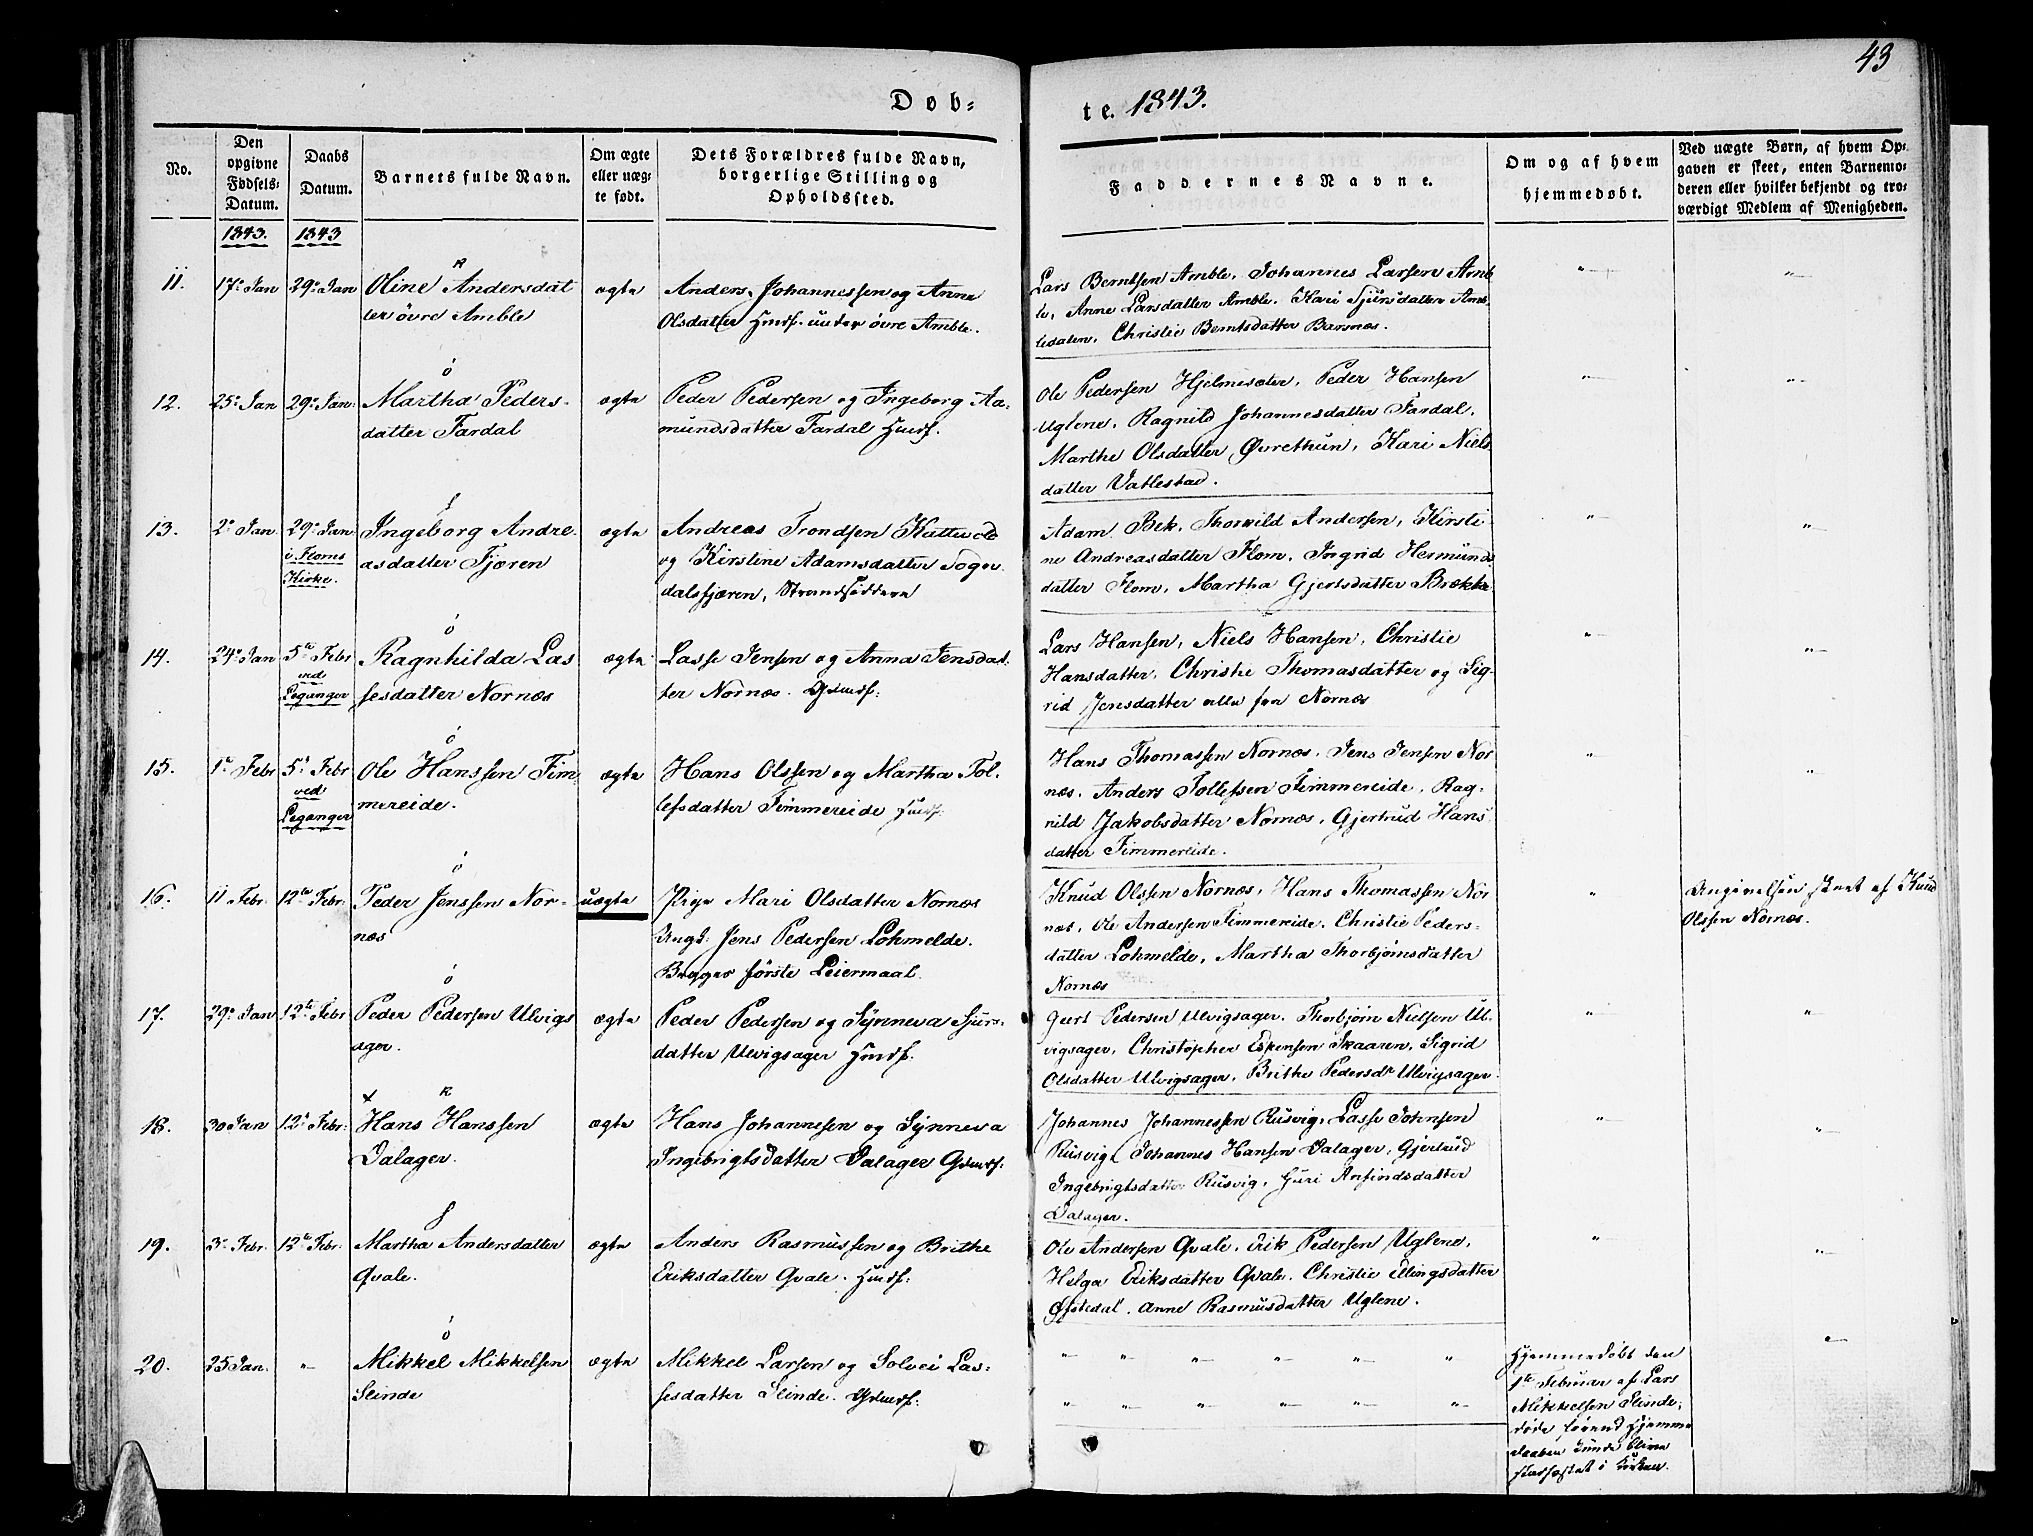 43
Døb-
te. 1843.
No.
Den
opgivne
Fødsels-
Datum.
Daabs
Datum.
Barnets fulde Navn.
Om ægte
eller uæg-
te født.
Dets Forældres fulde Navn,
borgerlige Stilling og
Opholdssted.
Faddernes Navne.
Om og af hvem
hjemmedøbt.
Ved uægte Børn, af hvem Op-
gaven er skeet, enten Barnemo-
deren eller hvilket bekjendt og tro-
værdigt Medlem af Menigheden.
1843.
1843
11.
17. Jan
29. Jan
Oline Andersdat
ter övre Amble
ægte
Anders Johannessen og Anna
Olsdatter Hmdf. under övre Amble.
Lars Berntsen Amble, Johannes Larsen Amb
le, Anne Larsdatter Amble. Kari Sjursdatter Amb
ledalen, Christie Berntsdatter Barsnæs.
12.
25. Jan
29. Jan.
Martha Peders-
datter Fardal
ægte
Peder Pedersen og Ingeborg Aa-
mundsdatter Fardal Hmdf.
Ole Pedersen Hjelmesæter, Peder Hansen
Uglene, Ragnild Johannesdatter Fardal,
Marthe Olsdatter Øvrethun, Kari Niels
datter Vatlestad.
13.
2. Jan
29. Jan
i Floms
Kirke.
Ingeborg Andre
asdatter Fjæren
ægte
Andreas Trondsen Kattevold
og Kirstine Adamsdatter Sogn
dalsfjæren, Strandsiddere
Adam Bek, Thorvild Andersen, Kirsti
ne Andreasdatter Flom, Ingrid Hermunds
datter Flom, Martha Gjertsdatter Brække
14.
24. Jan
5te Febr
ved
Leganger
Ragnhilda Las
sesdatter Nornæs
ægte
Lasse Jensen og Anna Jensdat
ter Nornæs. Gdmdf:
Lars Hansen, Niels Hansen, Christie
Hansdatter, Christie Thomasdatter og Sig-
rid Jensdatter alle fra Nornæs
15.
1te Febr
5te Febr
ved
Leganger
Ole Hanssen Tim
mereide.
ægte
Hans Olssen og Martha Tol-
lefsdatter Timmereide Hmdf:
Hans Thomassen Nornæs, Jens Jensen Nor
næs, Anders Tollefsen Timmereide, Rag-
nild Jakobsdatter Nornæs, Gjertrud Hans
datter Timmereide.
16.
11 Febr.
12te Febr.
Peder Jenssen Nor-
næs
uægte
Pige Mari Olsdatter Nornæs
Ungk: Jens Pedersen Lohmelde.
Begges förste Leiermaal.
Knud Olssen Nornæs, Hans Thomassen Nor
næs, Ole Andersen Timmereide, Christie Peders-
datter Lohmelde, Martha Thorbjørnsdatter
Nornæs
Angivelsen skeet af Knud
Olssen Nornæs.
17.
29. Jan
12te Febr
Peder Pedersen Ulvigs
ager.
ægte
Peder Pedersen og Synneva Sjurs-
datter Ulvigsager Hmdf.
Gurt Pedersen Ulvigsager, Thorbjörn Nielsen Ul-
vigsager, Christopher Eskensen Skaaren, Sigrid
Olsdatter Ulvigsager, Brithe Pedersdr Ulvigsager
18.
30 Jan
12te Febr:
Hans Hanssen
Dalager.
ægte
Hans Johannesen og Synneva
Ingebrigtsdatter Dalager Gdmdf.
Johannes Johannessen Rusvig, Lasse Johnsen
Rusvig, Johannes Hansen Dalager, Gjertrud
Ingebrigtsdatter Rusvig, Guri Anfindsdatter
Dalager.
19.
3. Febr.
12te Febr.
Martha Andersdatter
Qvale.
ægte
Anders Rasmussen og Brithe
Eriksdatter Qvale. Hmdf:
Ole Andersen Qvale, Erik Pedersen Uglene,
Helga Eriksdatter Qvale, Christie Ellingsdatter
Øfstedal. Anne Rasmusdatter Uglene.
20.
25 Jan.
Mikkel Mikkelsen
Slinde
ægte
Mikkel Larsen og Solvei Las-
sesdatter Slinde. Gdmdf:
Hjemmedøbt den
1te Februar af Lars
Mikkelsen Slinde,
døde førend Hjemme
daaben kunde blive
stadfæstet i Kirken.